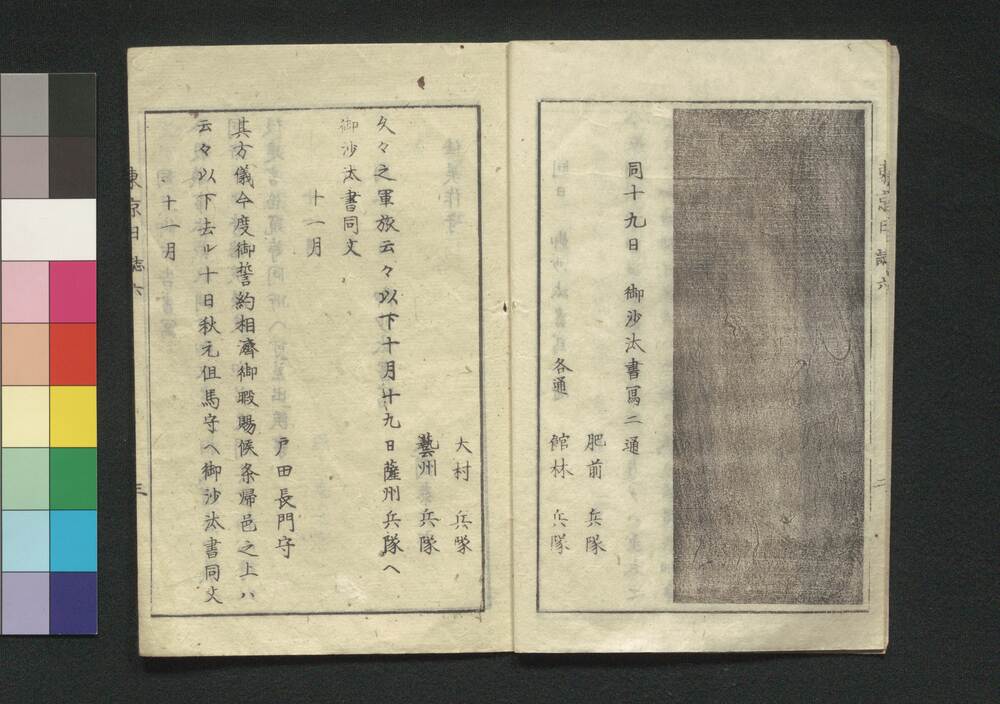 同十九日御沙汰書寫二通
肥前 兵隊
各通
館林 兵隊
大村 兵隊
藝州 兵隊
久々之軍旅云々以下十月十九日薩州兵隊へ
御沙汰書同文
十一月
戸田長門守
其方儀今度御誓約相濟御暇賜候条帰邑之上ハ
云々以下去ル十日秋元但馬守へ御沙汰書同文
十一月
東京日誌六
三